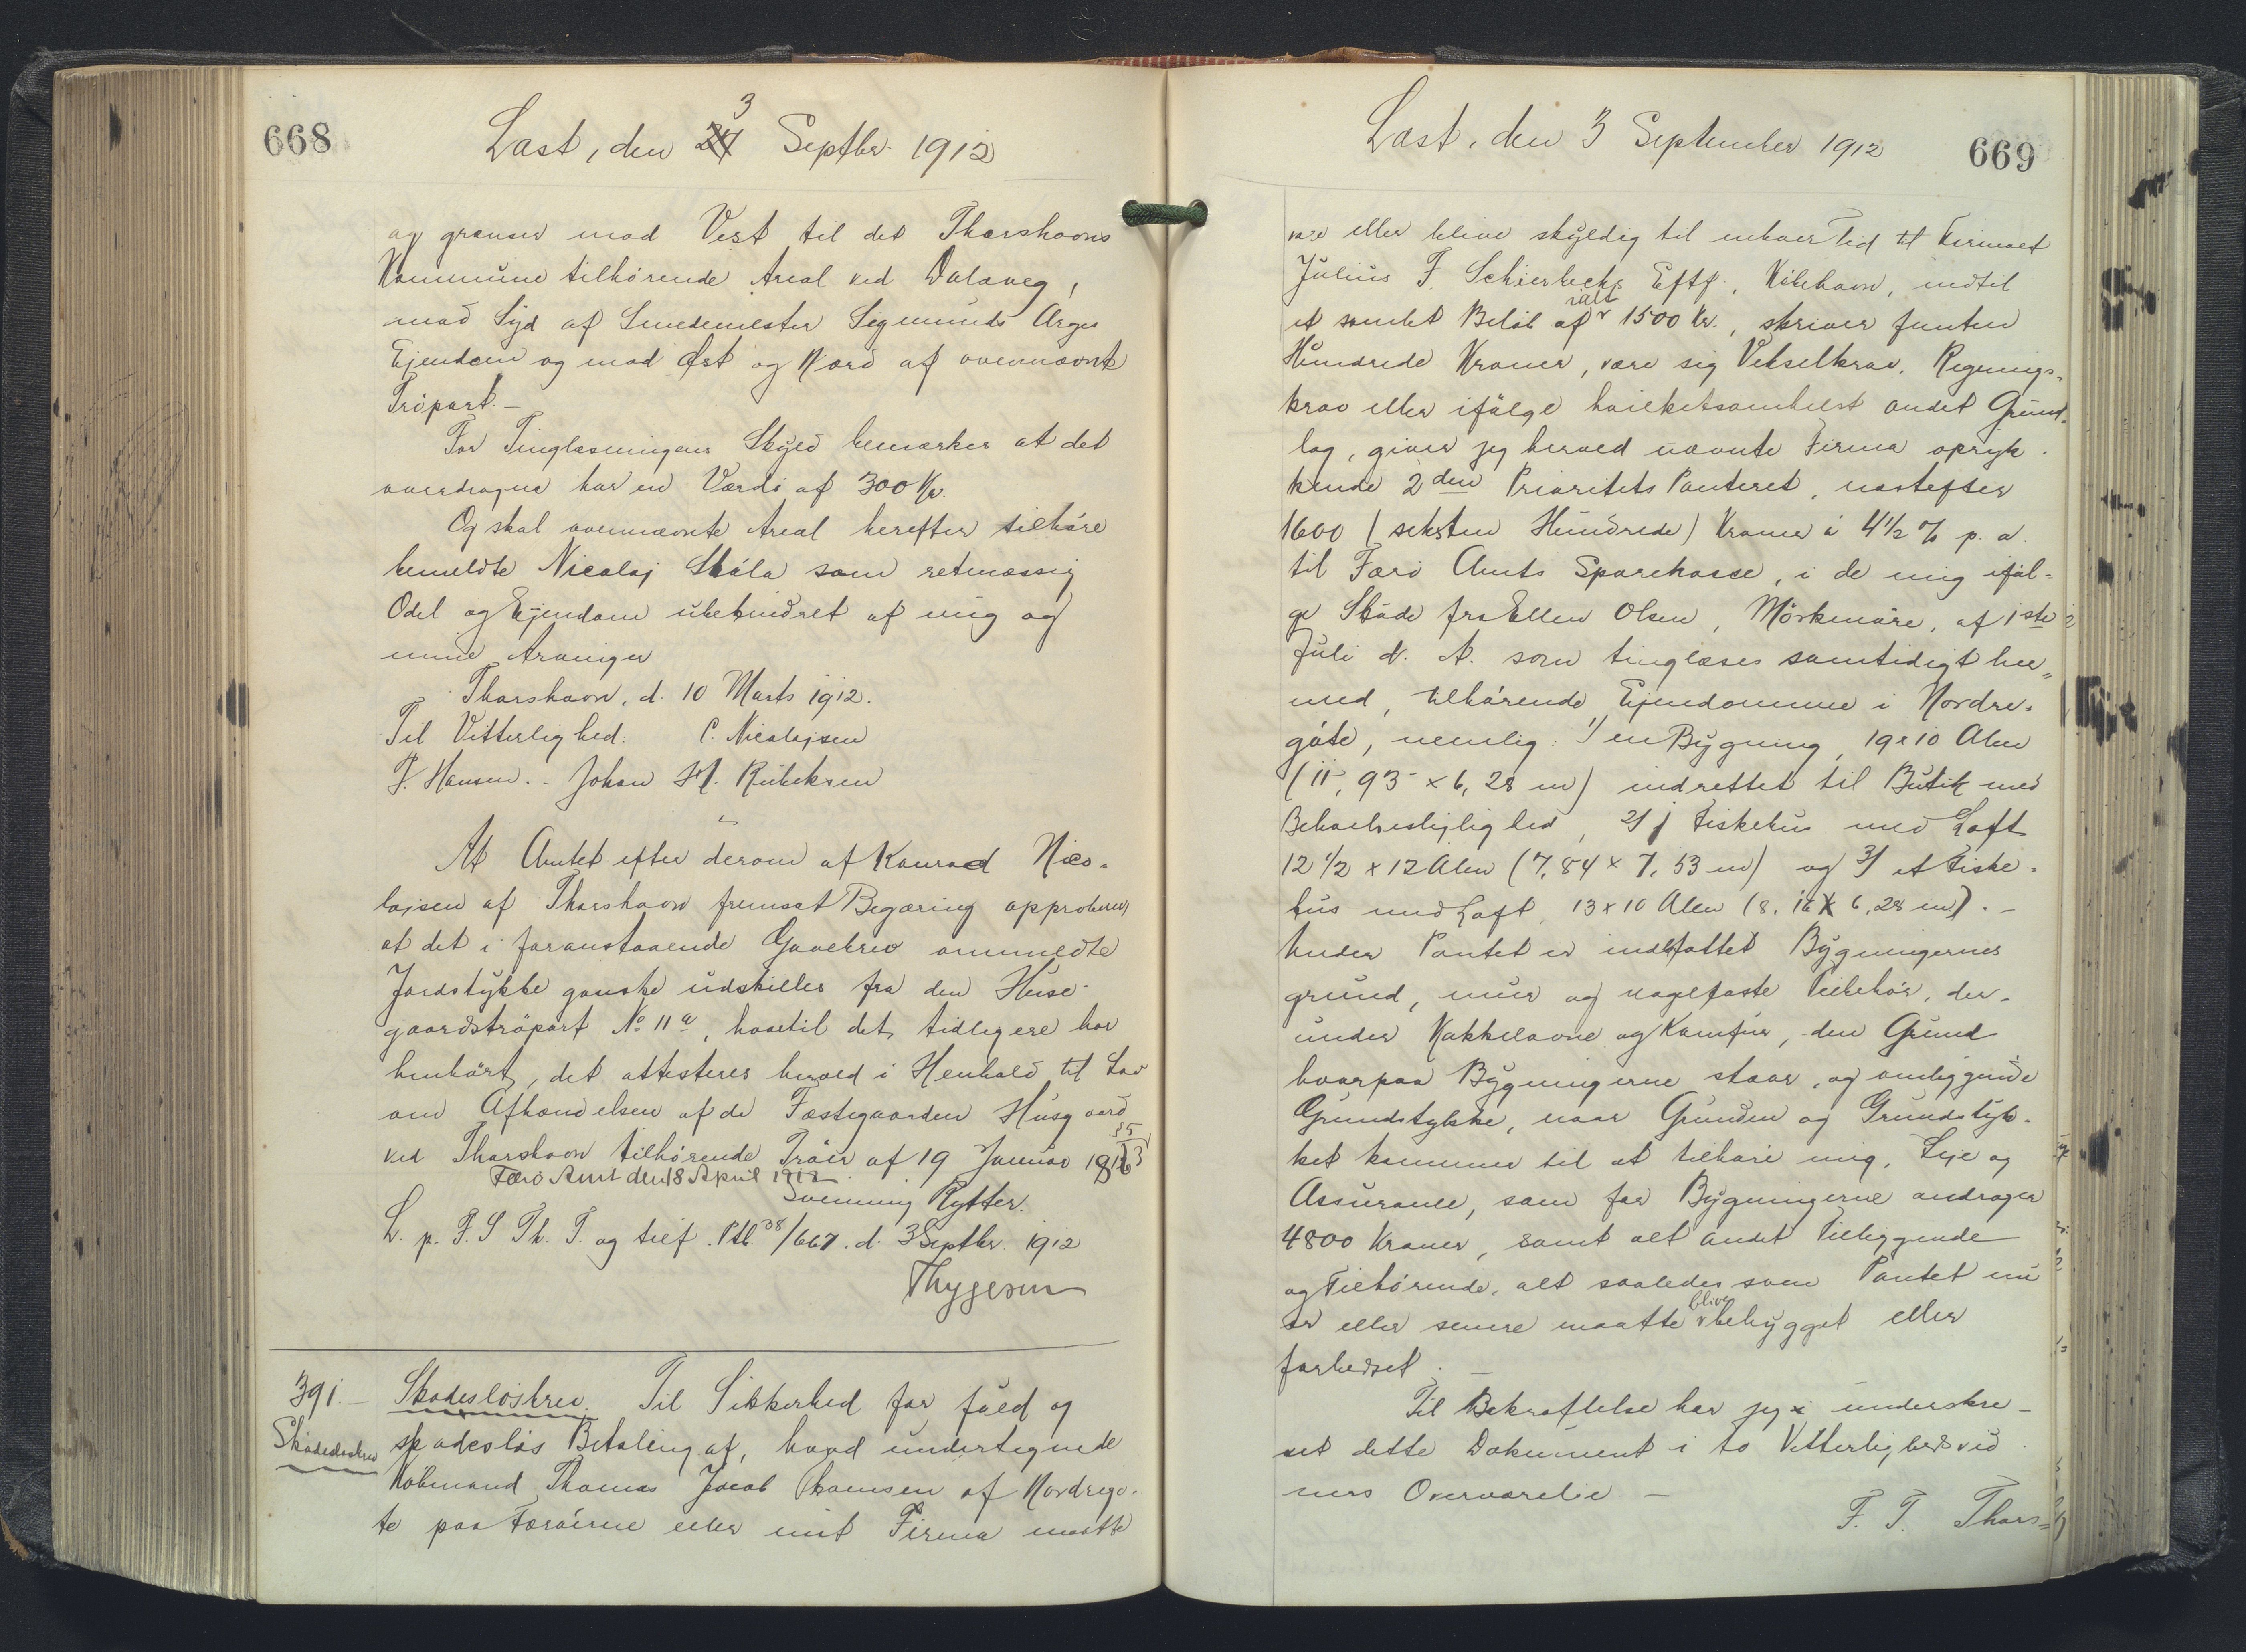 668
Læst, den 3 Septbr. 1912
og grænser mod Vest til det Thorshavns
Kommune tilhørende Areal ved Dalaveg,
mod Syd af Smedemester Sigmunds Arges
Ejendom og mod Øst og Nord af ovennævnte
Tröpart.-
For Tinglæsningens Skyld bemærkes at det
overdragne har en Værdi af 300 Kr.
Og skal ovennævnte Areal herefter tilhøre
bemeldte Nicolaj Skála som retmæssig
Odel og Ejendom ubehindret af mig og
mine Arvinger
Thorshavn, d. 10 Marts 1912.
Til Vitterlighed: C. Nicolajsen
J. Hansen. - Johan H.
At Amtet efter derom af Konrad Nico-
lajsen af Thorshavn fremsat Begæring approberer,
at det i foranstaaende Gavebrev ommeldte
Jordstykke ganske udskilles fra den Huse-
gaardströpart No 11a, hvortil det tidligere har
henhørt, det attesteres herved i Henhold til Lov
om Afhændelsen af de Fæstegaarden Husgaard
ved Thorshavn tilhørende Tröer af 19 Januar 1863 § 5
Færö Amt den 18 April 1912
Svenning Rytter.
L. p. F. S Th. T. og tilf. Ptb. 38/667. d. 3 Septbr. 1912
Thygesen
391.- Skadesløsbrev. Til Sikkerhed for fuld og
Skadesløsbrev skadesløs Betaling af, hvad undertegnede
Købmand Thomas Jacob Thomsen af Nordregö-
te paa Færöerne eller mit Firma maatte
Læst, den 3 September 1912 669
være eller blive skyldig til enhver Tid til Firmaet
Julius F. Schierbecks Eftf., Købehavn, indtil
et samlet Beløb af ialt 1500 Kr., skriver femten
Hundrede Kroner, være sig Vekselkrav, Regnings-
krav eller ifølge hvilketsomhelst andet Grund-
lag, giver jeg herved nævnte Firma opryk-
kende 2den Prioritets Panteret, næstefter
1600 (seksten Hundrede) Kroner à 4 1/2 % p. a.
til Færö Amts Sparekasse, i de mig iføl-
ge Skøde fra Ellen Olsen, Mörkenöre, af 1ste
Juli d. A. som tinglæses samtidigt her-
med, tilhørende Ejendomme i Nordre-
göte, nemlig: 1/ en Bygning, 19x10 Alen
(11,93 x 6,28 m) indrettet til Butik med
Beboelseslejlighed, 2/ 1 Fiskehus med Loft
12 1/2 x 12 Alen (7,84 x 7,53 m) og 3/ et Fiske-
hus med Loft, 13 x 10 Alen (8,16 x 6,28 m).-
Under Pantet er indbfattet Bygningernes
grund, mur og nagelfaste Tilbehör, der-
under Kakkelovne og Komfur, den Grund
hvorpaa Bygningerne staar, og omliggende
Grundstykke, naar Grunden og Grundstyk-
ket kommer til at tilhøre mig, Leje og
Assurance, som for Bygningerne andrager
4800 Kroner, samt alt andet Tilliggende
og Tilhørende, alt saaledes som Pantet nu
er eller senere maatte blive bebygget eller
forbedret.-
Til Bekræftelse har jeg underskre-
vet dette Dokument i to Vitterlighedsvid-
ners Overværelse -
F. T. Thors=